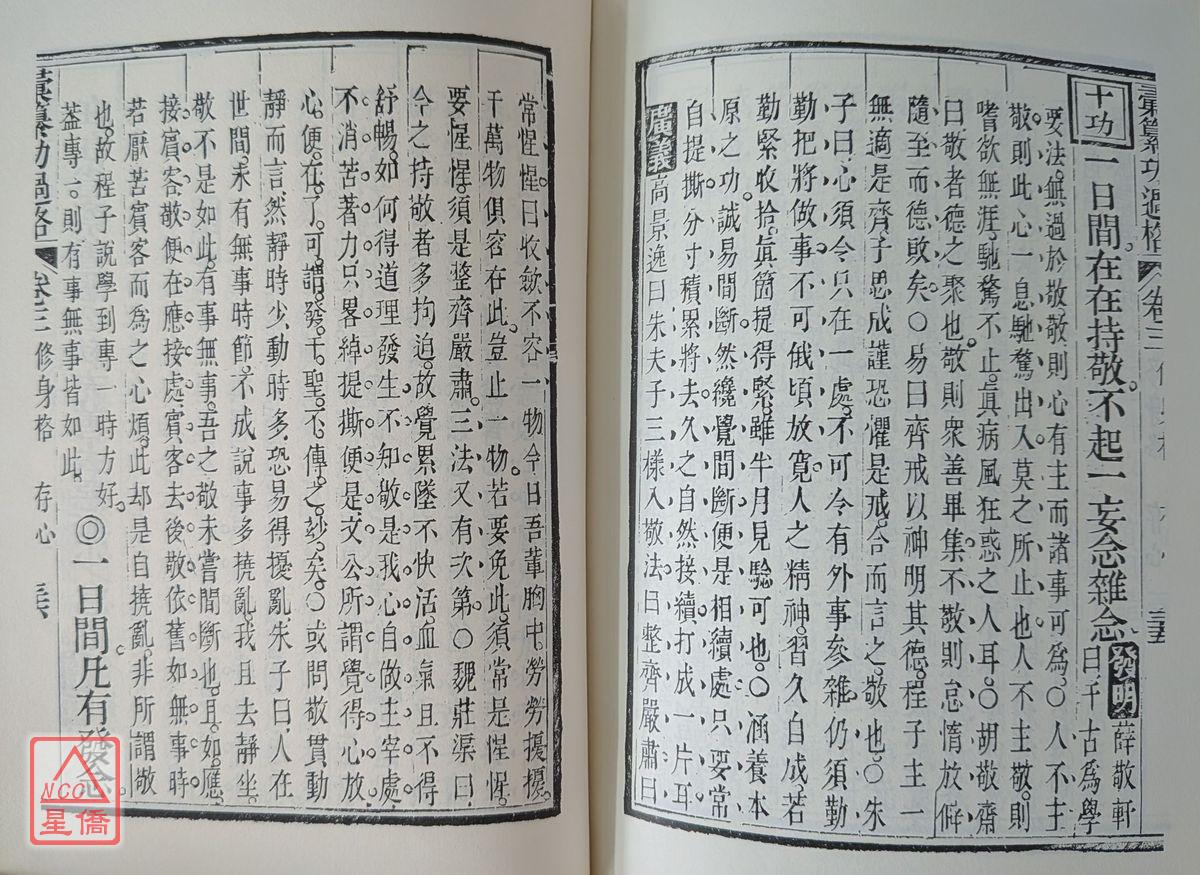 彙纂功過格 卷三
十功 一日間在在持敬。不起一妄念雜念 發明 薛敬軒曰千古為學
要法。無過於敬敬則心有主而諸事可為。○人不主
敬則此心一息馳騖出入莫之所止也人不主敬。則
嗜欲無涯。馳騖不止。眞病風狂惑之人耳。○胡敬齋
曰敬者德之聚也。敬則衆善畢集。不敬則怠惰放僻
隨至而德敗矣。○易曰齊戒以神明其德。程子主一
無適是齊子思戒謹恐懼是戒。合而言之。敬也。○朱
子曰心須令只在一處。不可令有外事參雜仍須勤
勤把將做事不可俄頃放寬人之精神。習久自成若
勤緊收拾。眞箇提得緊。雖半月見驗可也。○涵養本
原之功。誠易間斷然纔覺間斷便是相續處只要常
自提撕分寸積累將去久之自然接續打成一片耳
廣義 高景逸曰朱夫子三樣入敬法曰整齊嚴肅曰
常惺惺。曰收斂不容一物今日吾輩胸中。勞勞擾擾。
千萬物俱容在此。豈止一物。若要免此。須常是惺惺。
要惺惺。須是整齊嚴肅。三法又有次第。○魏莊渠曰
今之持敬者多拘迫。故覺累墜不快活。血氣且不得
舒暢。如何得道理發生不知敬是我心自做主宰處。
不消苦著力只畧綽提撕便是。文公所謂覺得心放
心。便。在。了。可。謂。發。千。聖。不。傳。之。妙。矣。○或問敬貫動
靜而言。然靜時少。動時多。恐易得擾亂。朱子曰。人在
世間。未有無事時節。不成說事多撓亂。我且去靜坐。
敬不是如此。有事無事。吾之敬未嘗間斷也。且如應
接賓客敬便在應接處賓客去後敬依舊如無事時
若厭苦賓客而為之心煩。此却是自撓亂。非所謂敬
也。故程子說學到專一時方好。◎一日間凡有發念
葢專一。則有事無事皆如此。
彙纂功過格 卷三 修身格 存心
NCC
星僑